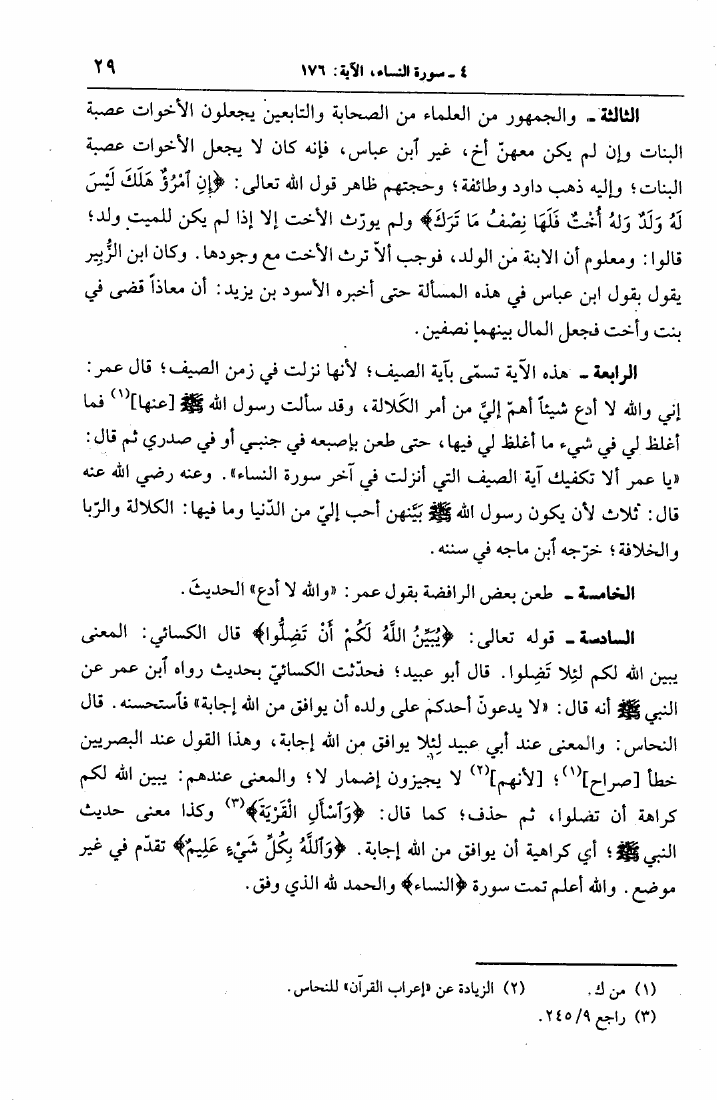 ٤ ـ سورة النساء، الآية: ١٧٦
٢٩
الثالثة ـ والجمهور من العلماء من الصحابة والتابعين يجعلون الأخوات عصبة
البنات وإن لم يكن معهنّ أخ، غير ٱبن عباس، فإنه كان لا يجعل الأخوات عصبة
البنات؛ وإليه ذهب داود وطائفة؛ وحجتهم ظاهر قول الله تعالى: ﴿إِنِ ٱمْرُؤٌ هَلَكَ لَيْسَ
لَهُ وَلَدٌ وَلَهُ أُخْتٌ فَلَهَا نِصْفُ مَا تَرَكَ﴾ ولم يورّث الأخت إلا إذا لم يكن للميت ولد؛
قالوا: ومعلوم أن الابنة من الولد، فوجب ألاّ ترث الأخت مع وجودها. وكان ابن الزُّبير
يقول بقول ابن عباس في هذه المسألة حتى أخبره الأسود بن يزيد: أن معاذاً قضى في
بنت وأخت فجعل المال بينهما نصفين.
الرابعة ـ هذه الآية تسمّى بآية الصيف؛ لأنها نزلت في زمن الصيف؛ قال عمر:
إني والله لا أدع شيئاً أهمّ إليَّ من أمر الكَلالة، وقد سألت رسول الله ﷺ [عنها](١) فما
أغلظ لي في شيء ما أغلظ لي فيها، حتى طعن بإصبعه في جنبي أو في صدري ثم قال:
«يا عمر ألا تكفيك آية الصيف التي أنزلت في آخر سورة النساء». وعنه رضي الله عنه
قال: ثلاث لأن يكون رسول الله ﷺ بَيَّنهن أحب إليّ من الدّنيا وما فيها: الكلالة والرّبا
والخلافة؛ خرّجه ٱبن ماجه في سننه.
الخامسة ـ طعن بعض الرافضة بقول عمر: «والله لا أدع» الحديثَ.
السادسة ـ قوله تعالى: ﴿يُبَيِّنُ اللَّهُ لَكُمْ أَنْ تَضِلُّوا﴾ قال الكسائي: المعنى
يبين الله لكم لئِلا تَضِلوا. قال أبو عبيد؛ فحدّثت الكسائيّ بحديث رواه ٱبن عمر عن
النبي ﷺ أنه قال: «لا يدعونّ أحدكم على ولده أن يوافق من الله إجابة» فٱستحسنه. قال
النحاس: والمعنى عند أبي عبيد لِئِلا يوافق من الله إجابة، وهذا القول عند البصريين
خطأ [صراح](١)؛ [لأنهم](٢) لا يجيزون إضمار لا؛ والمعنى عندهم: يبين الله لكم
كراهة أن تضلوا، ثم حذف؛ كما قال: ﴿وَٱسْأَلِ الْقَرْيَةَ﴾(٣) وكذا معنى حديث
النبي ﷺ؛ أي كراهية أن يوافق من الله إجابة. ﴿وَٱللَّهُ بِكُلِّ شَيْءٍ عَلِيمٌ﴾ تقدّم في غير
موضع. والله أعلم تمت سورة ﴿النساء﴾ والحمد لله الذي وفق.
(١) من ك. (٢) الزيادة عن «إعراب القرآن» للنحاس.
(٣) راجع ٢٤٥/٩.